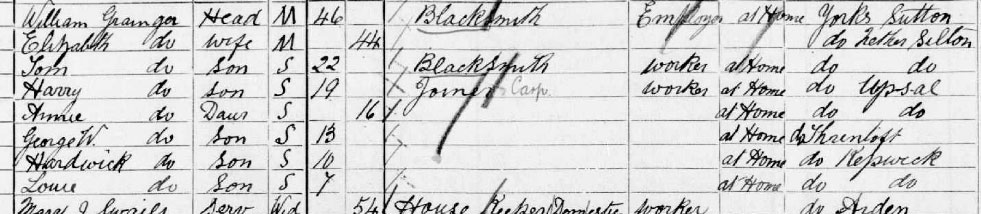 William Grainger Head M 46 Blacksmith Employer at Home Yorks Sutton
Elizabeth do wife M 44 do Nether Silton
Tom do Son S 22 Blacksmith worker at Home do do
Harry do Son S 19 Joiner Carp. worker at Home do Upsal
Annie do Daur S 16 at Home do do
George W. do Son S 13 at Home do Thrintoft
Hardwick do Son S 10 at Home do Kepwick
Louie do Son S 7 at Home do do
Mary J Swails Serv Wid 54 House Keeper Domestic worker do Arden